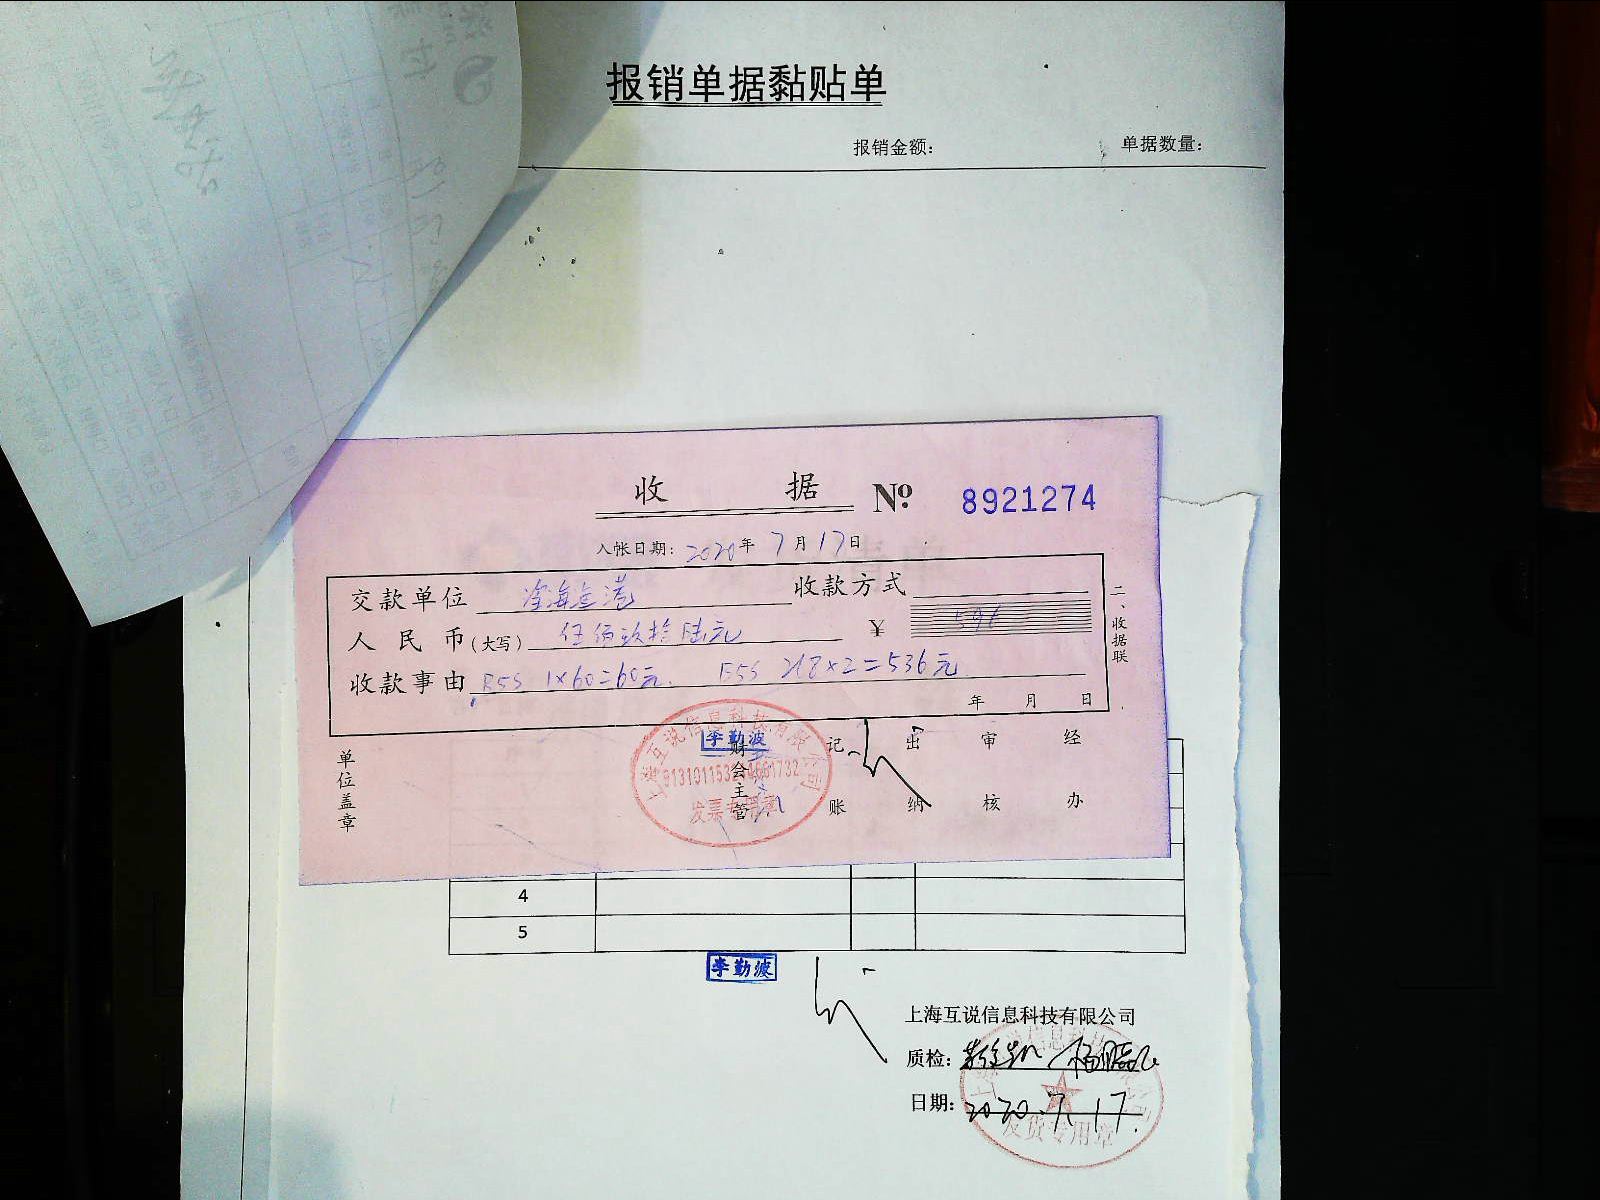 报销单据黏贴单
报销金额： 单据数量：
收 据 № 8921274
入帐日期：2020年7月17日
交款单位 收款方式
人民币(大写) 伍佰玖拾陆元 ￥ 596
收款事由 B5S 1×60=60元. B5S 268×2=536元
年 月 日
二、收据联
单位盖章
财会主管 记账 出纳 审核 经办
李勤波
上海互说信息科技有限公司
发票专用章
4
5
李勤波
上海互说信息科技有限公司
质检：
日期：2020.7.17.
发货专用章